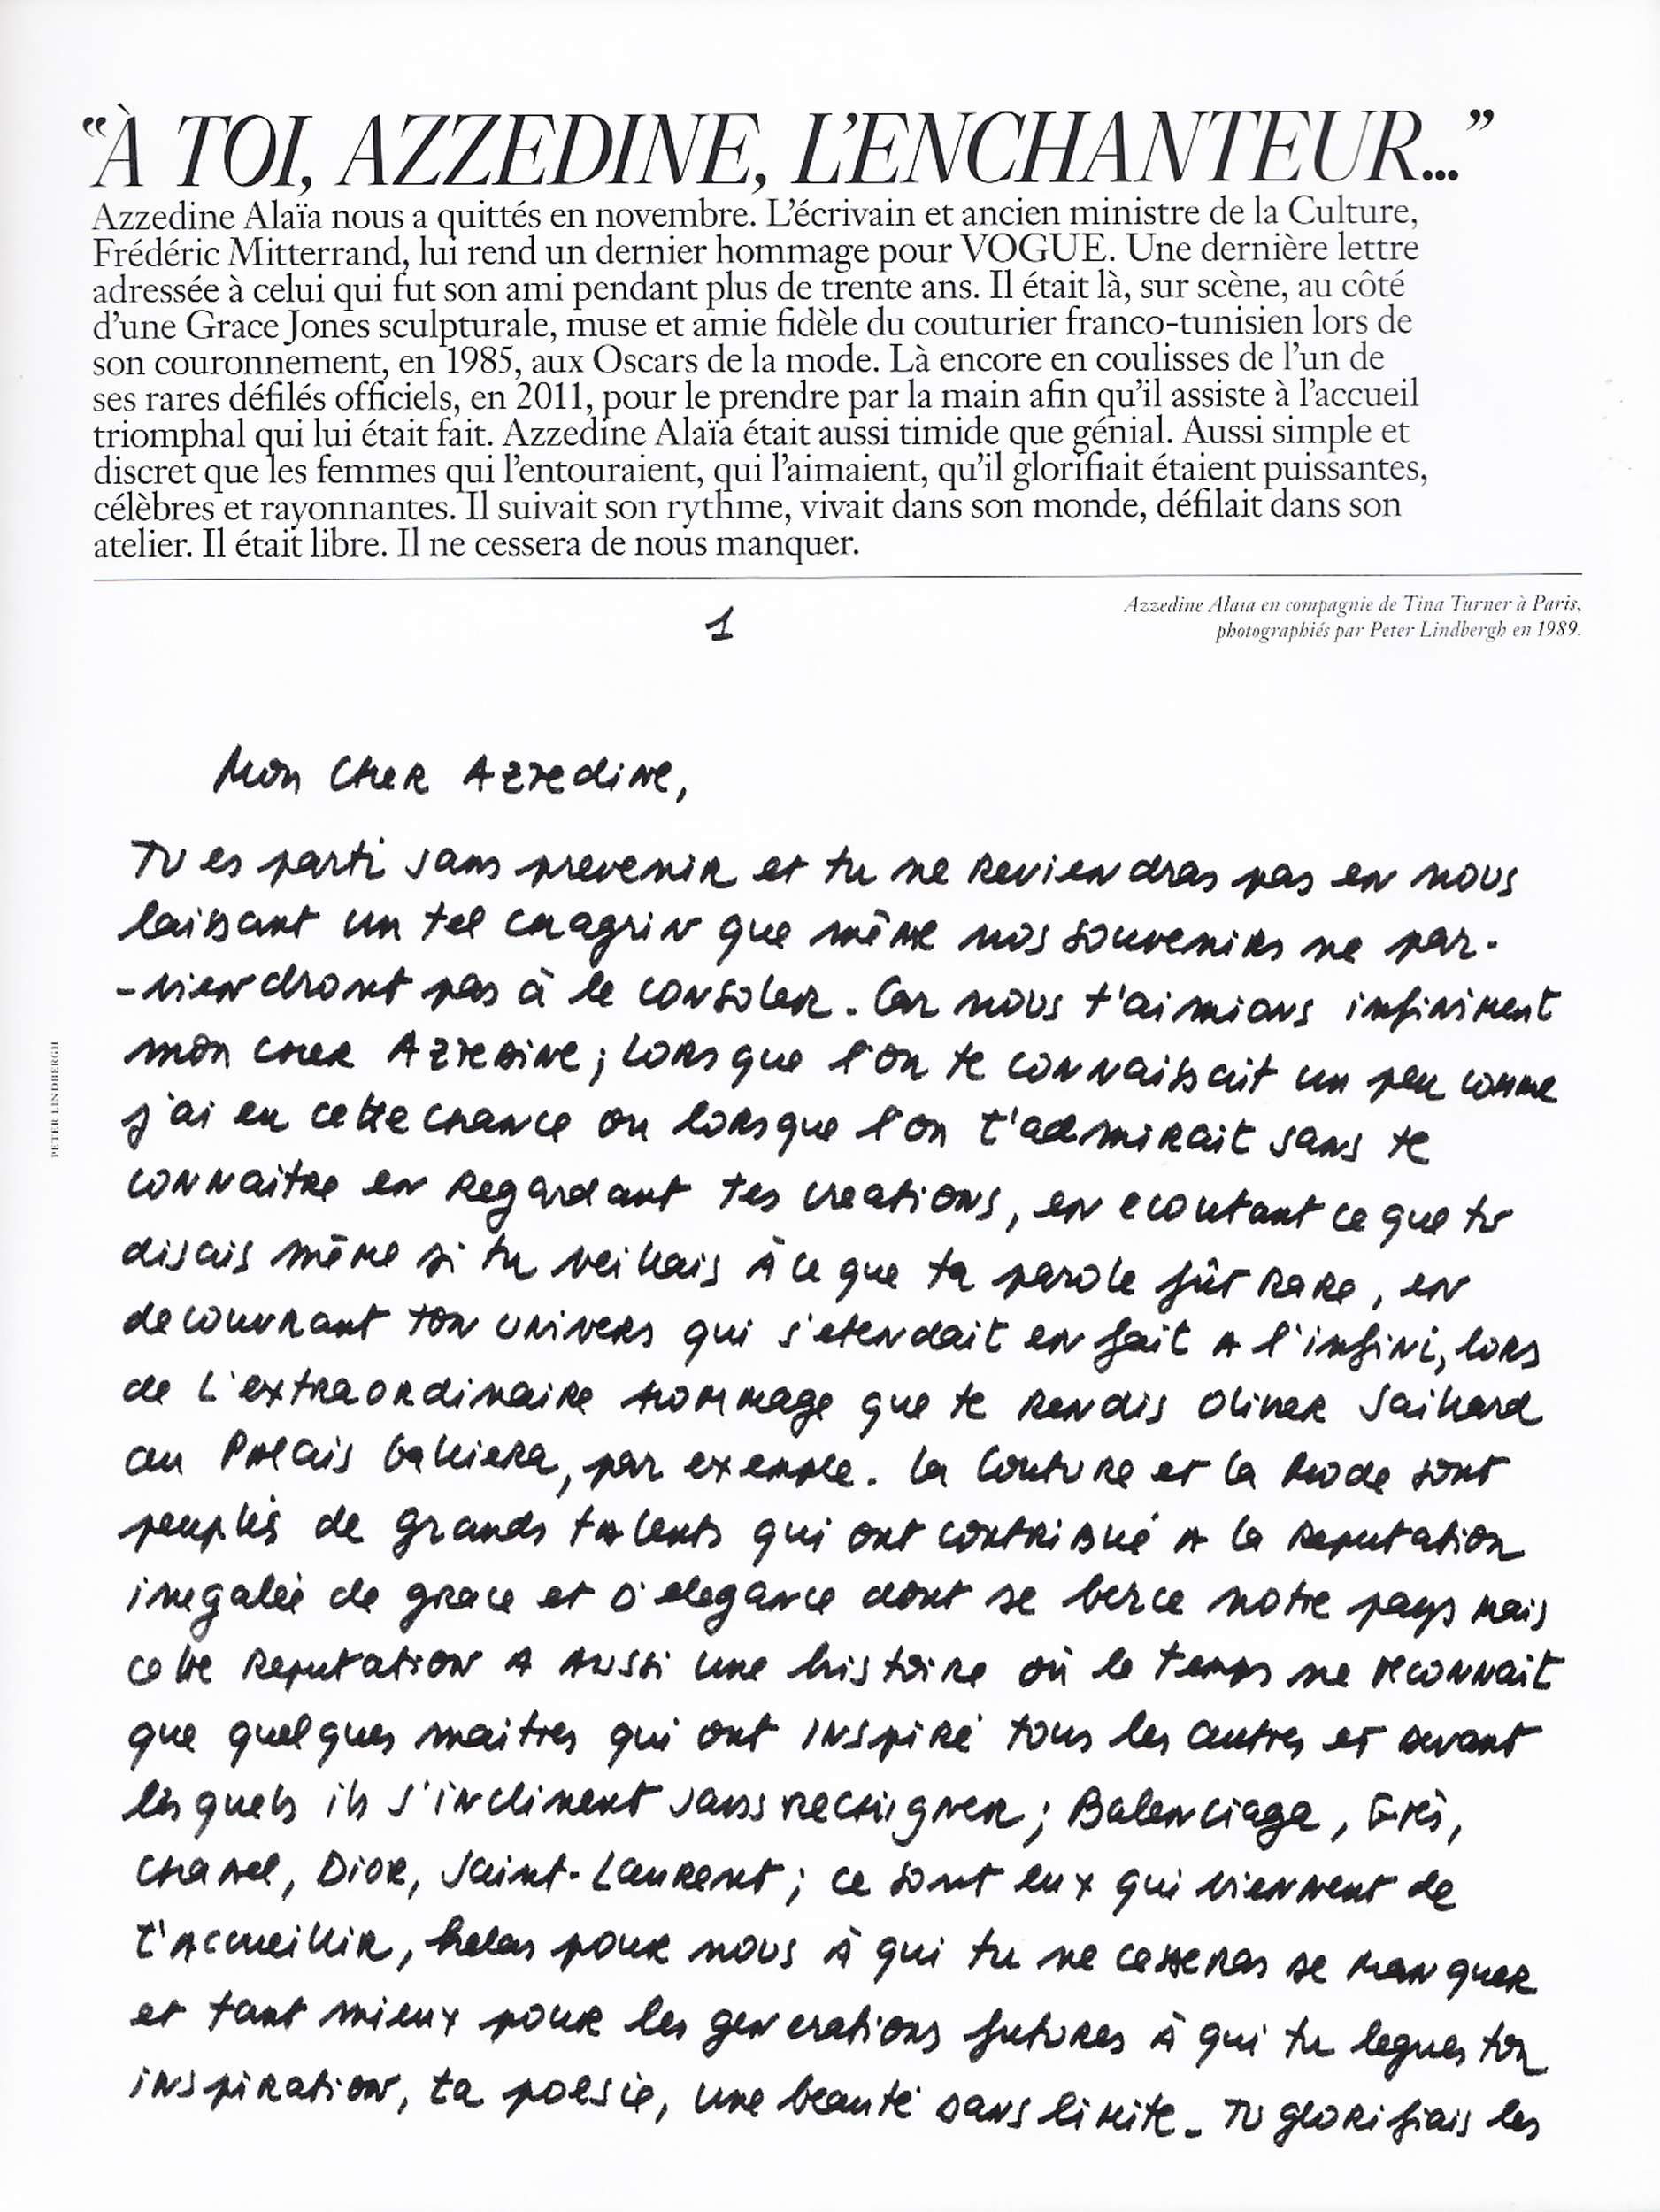 “À TOI, AZZEDINE, L’ENCHANTEUR...”
Azzedine Alaïa nous a quittés en novembre. L’écrivain et ancien ministre de la Culture,
Frédéric Mitterrand, lui rend un dernier hommage pour VOGUE. Une dernière lettre
adressée à celui qui fut son ami pendant plus de trente ans. Il était là, sur scène, au côté
d’une Grace Jones sculpturale, muse et amie fidèle du couturier franco-tunisien lors de
son couronnement, en 1985, aux Oscars de la mode. Là encore en coulisses de l’un de
ses rares défilés officiels, en 2011, pour le prendre par la main afin qu’il assiste à l’accueil
triomphal qui lui était fait. Azzedine Alaïa était aussi timide que génial. Aussi simple et
discret que les femmes qui l’entouraient, qui l’aimaient, qu’il glorifiait étaient puissantes,
célèbres et rayonnantes. Il suivait son rythme, vivait dans son monde, défilait dans son
atelier. Il était libre. Il ne cessera de nous manquer.
Azzedine Alaïa en compagnie de Tina Turner à Paris,
photographiés par Peter Lindbergh en 1989.
1
PETER LINDBERGH
Mon Cher Azzedine,
Tu es parti sans prevenir et tu ne Reviendras pas en nous
laissant un tel chagrin que même nos souvenirs ne par-
-viendront pas à le consoler. Car nous t'aimions infiniment
mon cher Azzedine; lorsque l'on te connaissait un peu comme
j'ai eu cette chance ou lorsque l'on t'admirait sans te
connaitre en Regardant tes creations, en ecoutant ce que tu
disais même si tu veillais à ce que ta parole fût rare, en
decouvrant ton univers qui s'etendait en fait a l'infini, lors
de l'extraordinaire hommage que te rendis Oliver Saillard
au Palais Galliera, par exemple. La Couture et la Mode sont
peuplés de grands talents qui ont contribué a la Reputation
inegalée de grace et d'elegance dont se berce notre pays mais
cette Reputation a aussi une histoire où le temps ne reconnait
que quelques maitres qui ont inspiré tous les autres et devant
lesquels ils s'inclinent sans rechigner; Balenciaga, Grès,
Chanel, Dior, Saint-Laurent; ce sont eux qui viennent de
t'accueillir, helas pour nous à qui tu ne cesseras de manquer
et tant mieux pour les generations futures à qui tu legues ton
inspiration, ta poesie, une beauté sans limite. Tu glorifiais les